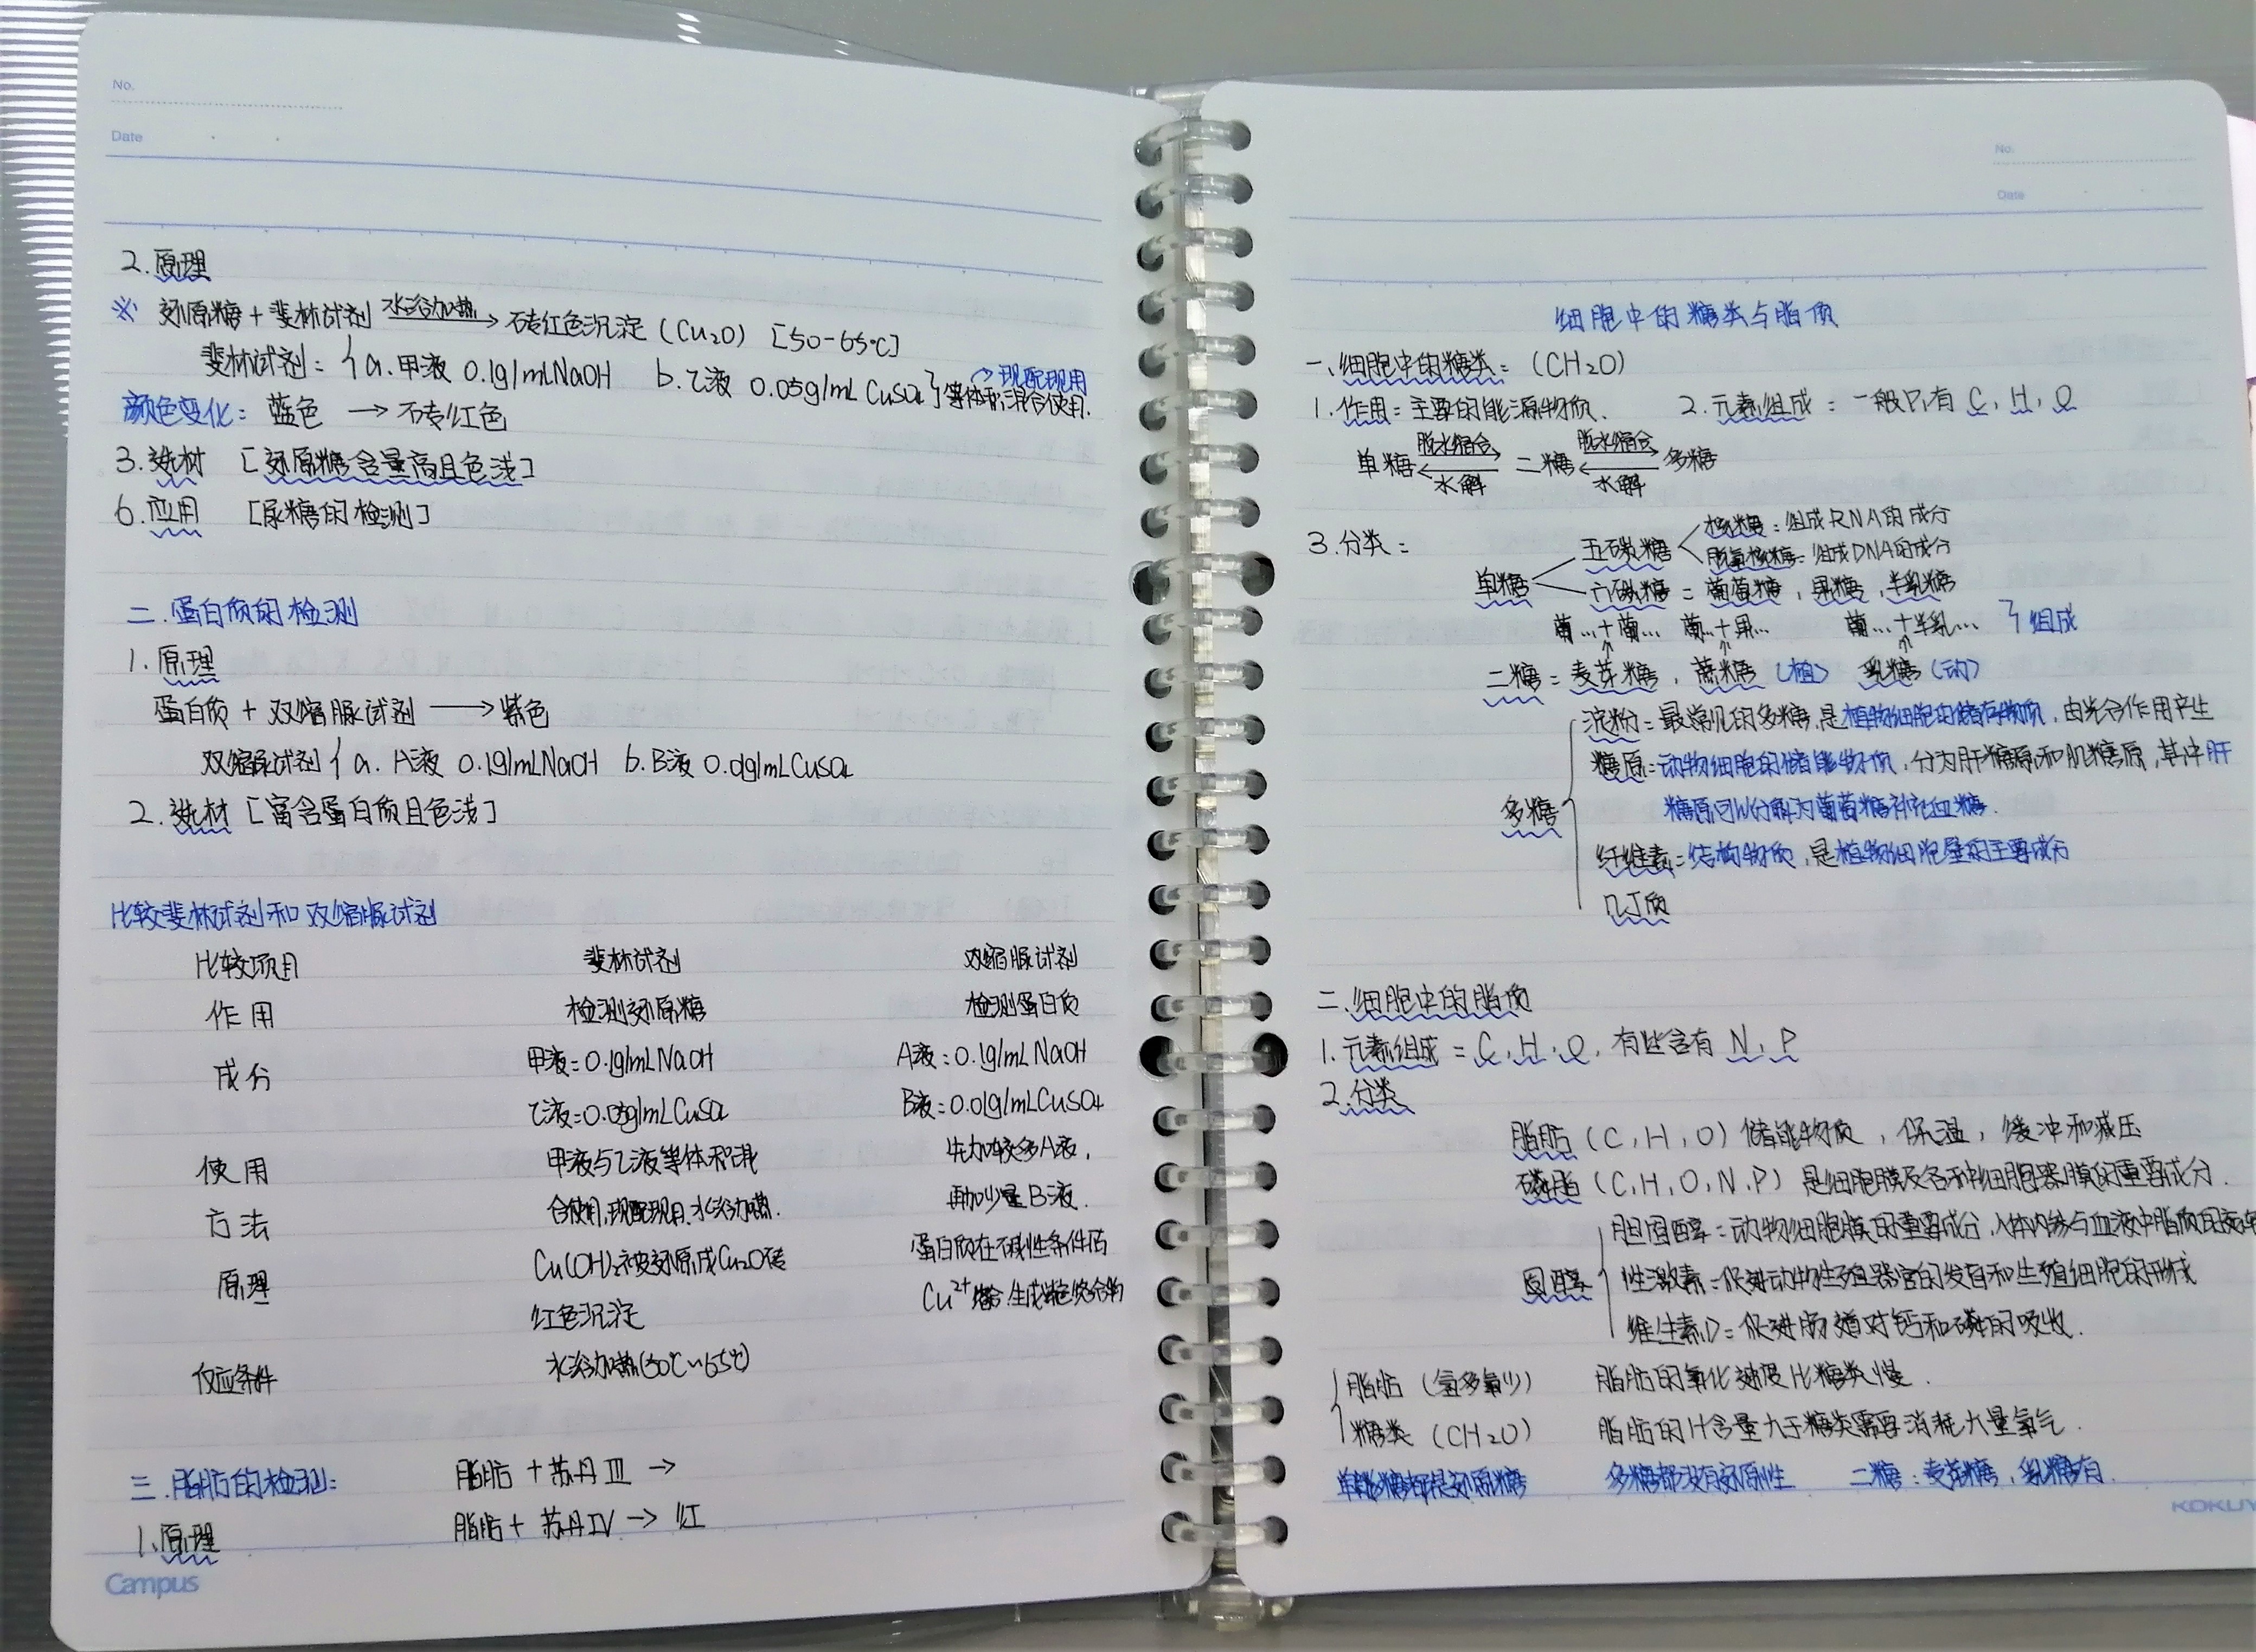 No.
Date
2.原理
※ 还原糖+斐林试剂 水浴加热→ 砖红色沉淀(Cu₂O) [50-65℃]
斐林试剂:{a.甲液 0.1g/mLNaOH b.乙液 0.05g/mL CuSO₄}等体积混合使用.
→现配现用
颜色变化: 蓝色 → 砖红色
3.选材 [还原糖含量高且色浅]
6.应用 [尿糖的检测]
二.蛋白质的检测
1.原理
蛋白质 + 双缩脲试剂 → 紫色
双缩脲试剂{a. A液 0.1g/mLNaOH b.B液 0.01g/mLCuSO₄
2.选材[富含蛋白质且色浅]
比较斐林试剂和双缩脲试剂
比较项目 斐林试剂 双缩脲试剂
作用 检测还原糖 检测蛋白质
成分 甲液:0.1g/mLNaOH A液:0.1g/mLNaOH
乙液:0.05g/mLCuSO₄ B液:0.01g/mLCuSO₄
使用 甲液与乙液等体积混 先加较多A液,
方法 合使用,现配现用、水浴加热. 再加少量B液.
原理 Cu(OH)₂被还原成Cu₂O砖 蛋白质在碱性条件后
红色沉淀 Cu²⁺ 生成紫色络合物
反应条件 水浴加热(50℃~65℃)
三.脂肪的检测: 脂肪 + 苏丹Ⅲ →
1.原理 脂肪 + 苏丹Ⅳ → 红
Campus
No.
Date
细胞中的糖类与脂质
一、细胞中的糖类:(CH₂O)
1.作用:主要的能源物质. 2.元素组成:一般只有C,H,O
单糖 脱水缩合⇌水解 二糖 脱水缩合⇌水解 多糖
3.分类:
单糖 五碳糖 核糖:组成RNA的成分
脱氧核糖:组成DNA的成分
六碳糖:葡萄糖,果糖,半乳糖
葡…+葡… 葡…+果… 葡…+半乳… }组成
二糖:麦芽糖,蔗糖(植) 乳糖(动)
多糖{淀粉:最常见的多糖,是植物细胞的储存物质,由光合作用产生
糖原:动物细胞的储能物质,分为肝糖原和肌糖原,其中肝
糖原可以分解为葡萄糖补充血糖.
纤维素:结构物质,是植物细胞壁的主要成分
几丁质
二.细胞中的脂质
1.元素组成:C,H,O,有些含有N,P
2.分类
脂肪(C,H,O)储能物质,保温,缓冲和减压
磷脂(C,H,O,N,P)是细胞膜及各种细胞器膜的重要成分.
固醇{胆固醇:动物细胞膜的重要成分,人体内参与血液中脂质的运输
性激素:促进动物生殖器官的发育和生殖细胞的形成
维生素D:促进肠道对钙和磷的吸收.
{脂肪(氢多氧少) 脂肪的氧化速度比糖类慢.
糖类(CH₂O) 脂肪的H含量大于糖类需要消耗大量氧气.
单糖都是还原糖 多糖都没有还原性 二糖:麦芽糖,乳糖有.